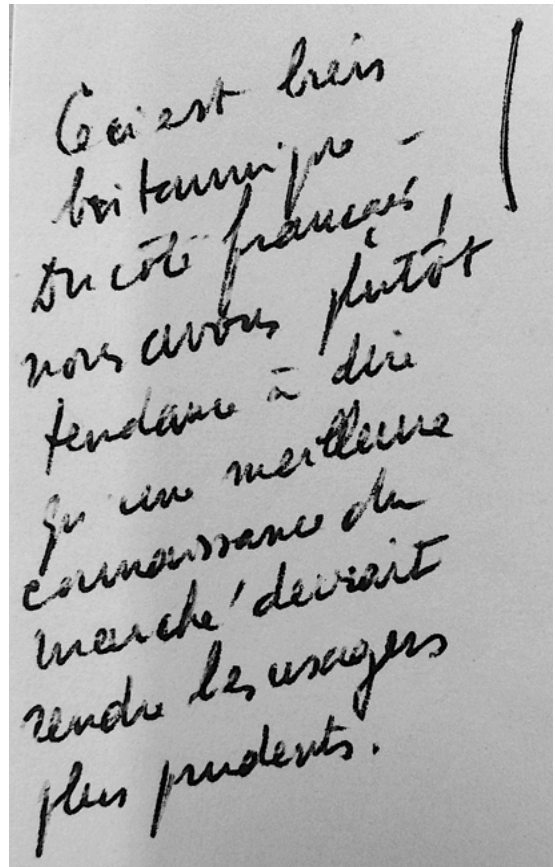 Ceci est bien
britannique -
Du côté français,
nous avons plutôt
tendance à dire
qu'une meilleure
connaissance du
marché devrait
rendre les usagers
plus prudents.